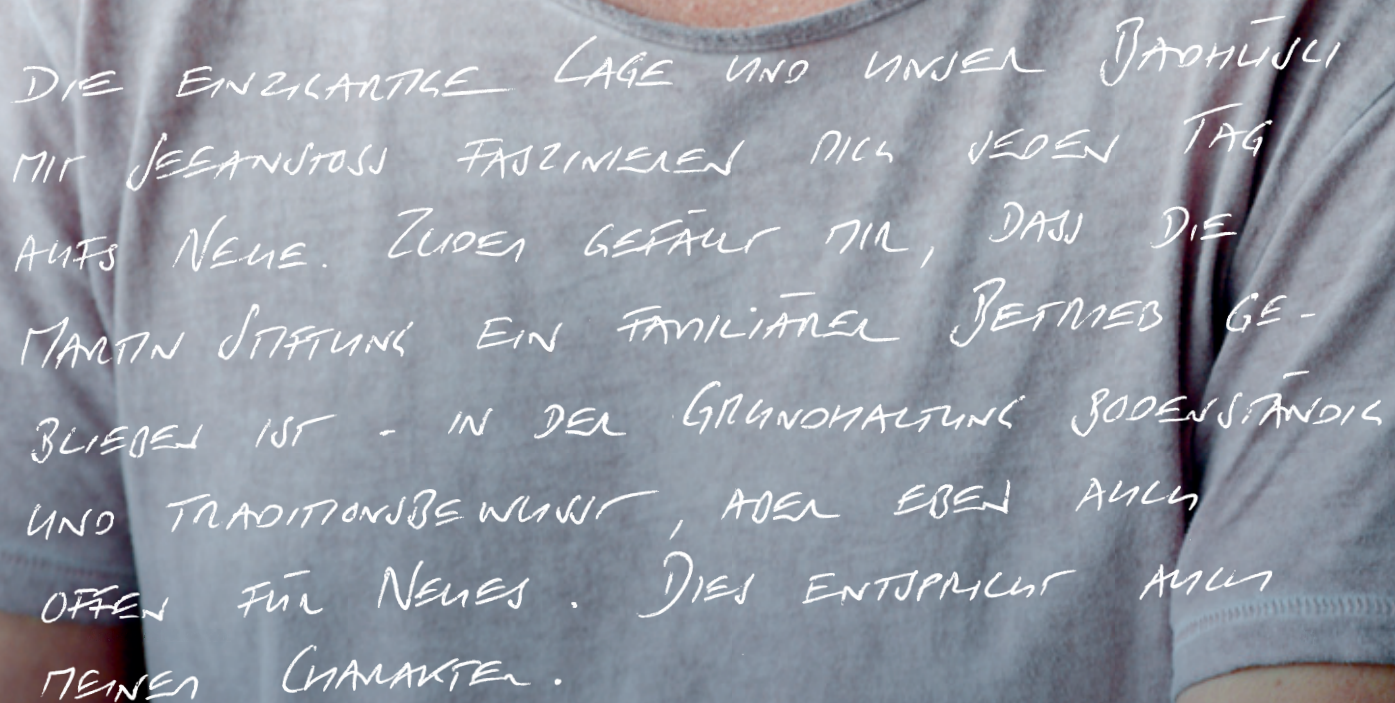 DIE EINZIGARTIGE LAGE UND UNSER BADHÜSLI
MIT SEEANSTOSS FASZINIEREN MICH JEDEN TAG
AUFS NEUE. ZUDEM GEFÄLLT MIR, DASS DIE
MARTIN STIFTUNG EIN FAMILIÄRER BETRIEB GE-
BLIEBEN IST - IN DER GRUNDHALTUNG BODENSTÄNDIG
UND TRADITIONSBEWUSST, ABER EBEN AUCH
OFFEN FÜR NEUES. DIES ENTSPRICHT AUCH
MEINEM CHARAKTER.